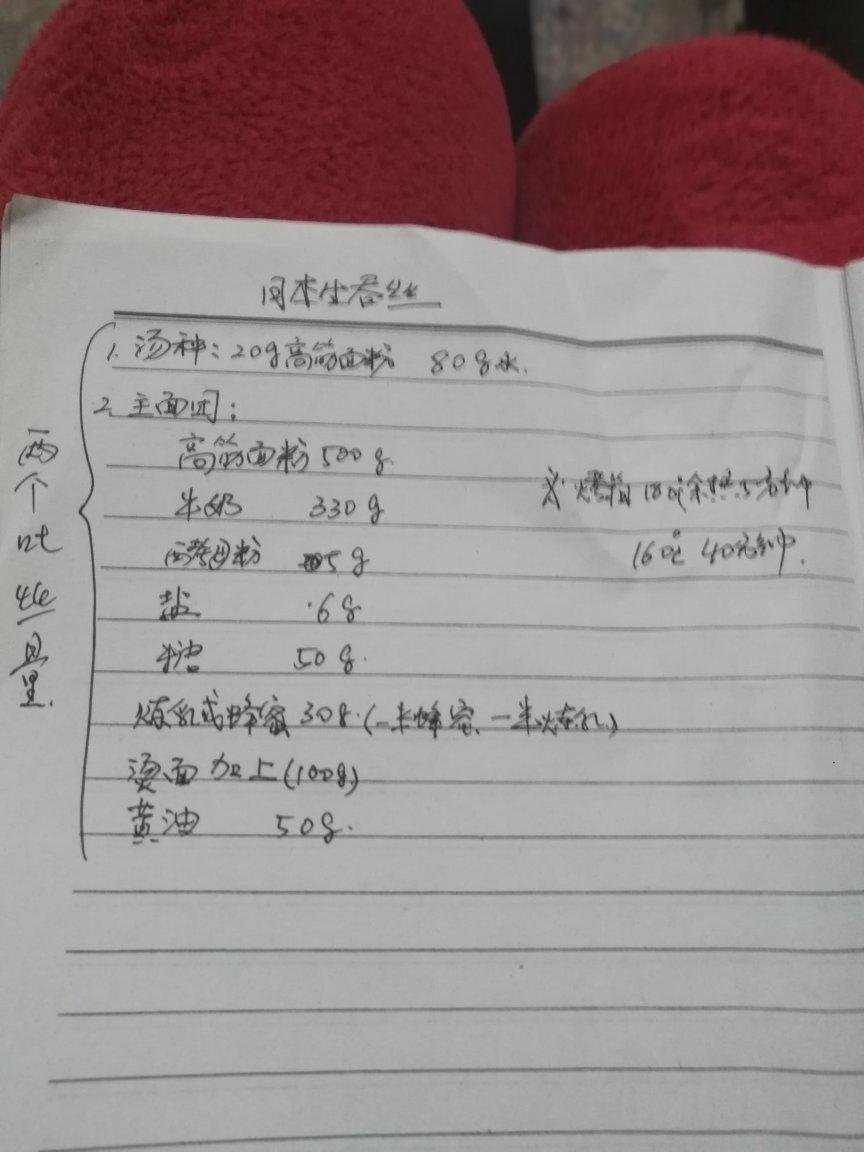 日本生吞丝
1. 汤种：20g高筋面粉 80g水.
2. 主面团：
高筋面粉 500g.
牛奶 330g
酵母粉 5g
盐 6g
糖 50g.
炼乳或蜂蜜 30g.(一半蜂蜜、一半炼乳)
烫面加上(100g)
黄油 50g.
两个吐丝量.
烤箱 180℃预热5分钟
160℃ 40分钟.